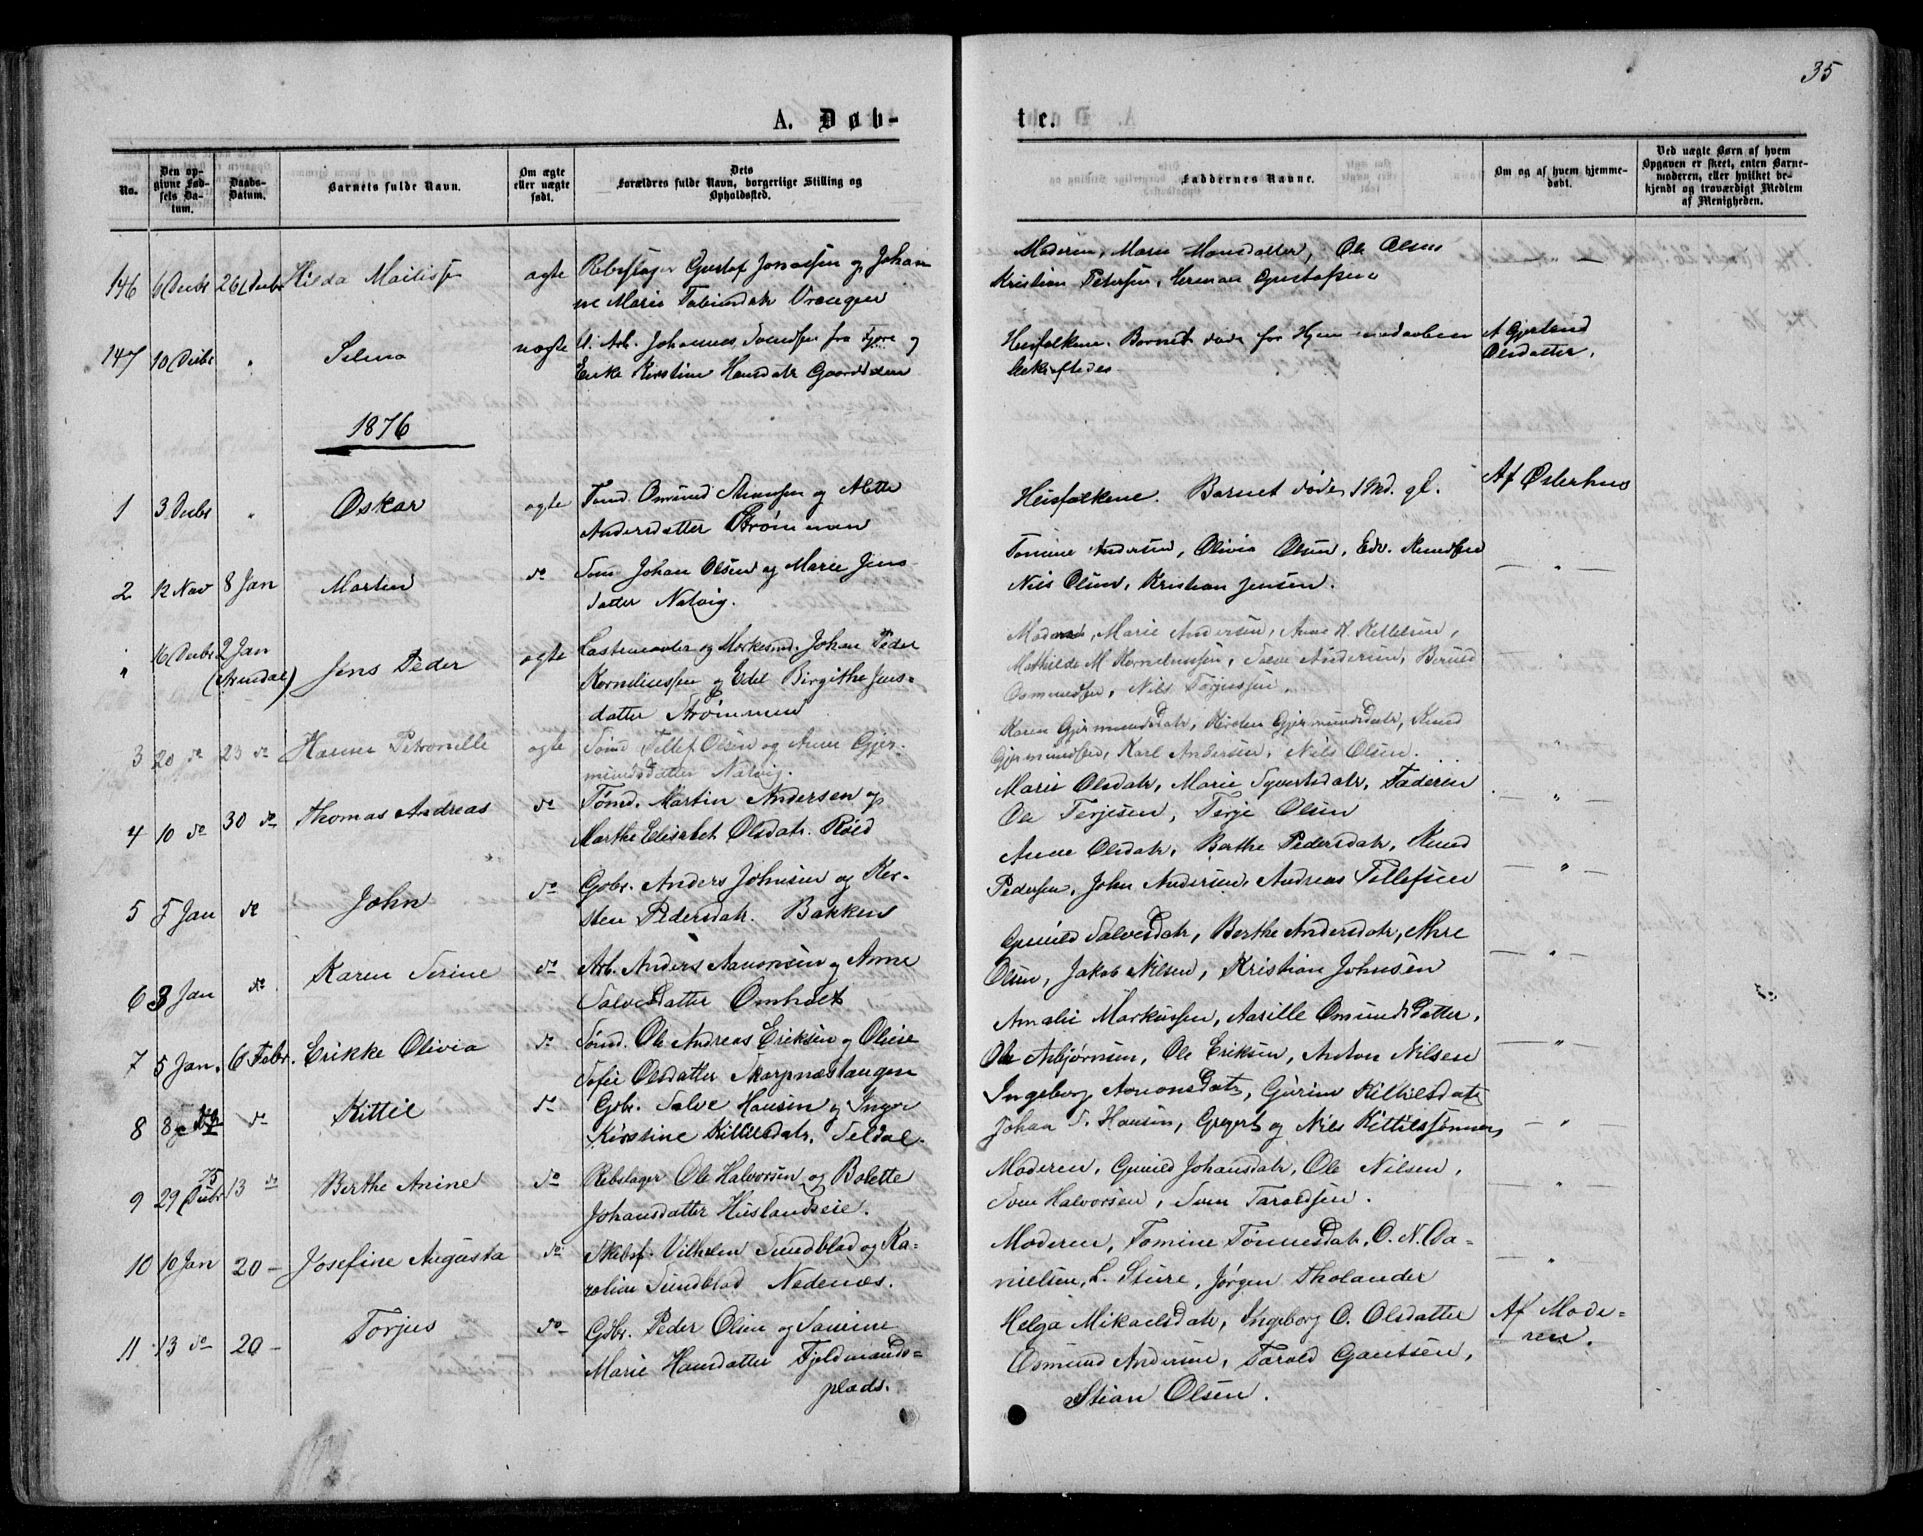 35
A. Døb-
te.
No.
Den op-
givne Fød-
sels Da-
tum.
Daabs-
Datum.
Barnets fulde Navn.
Om ægte
eller uægte
født.
Dets
Forældres fulde Navn, borgerlige Stilling og
Opholdssted.
Faddernes Navne.
Om og af hvem hjemme-
døbt.
Ved uægte Børn af hvem
Opgaven er skeet, enten Barne-
moderen, eller hvilket be-
kjendt og troværdigt Medlem
af Menigheden.
146 6 Decbr 26 Decbr Hilda ægte Rebslager Gustaf Jonassen og Johan
ne Marie Vrangen
Moderen, Marie Hansdatter, Ole Olsen
Kristian Petersen, Herman Gustafsen
147 10 Decbr " Selma uægte U. Arb. Johannes Svendsen fra Fjære og
Enke Kirstine Hansdatr
Husfolkene. Barnet døde før Hjemmedaaben
bekræftedes.
Af Gjertrud
Olsdatter.
1876
1 3 Decbr " Oskar ægte Tømd. Osmund og Mette
Andersdatter Strømmen
Husfolkene. Barnet døde, 1 Md. gl.
Af Østerhus
2 12 Nov 8 Jan Martin do Tømd Johan Olsen og Marie Jens
datter Natvig.
Tomine Andersen, Olivia Olsen, Edv. Knudsen
Nils Olsen, Kristian Jensen.
— " —
" 16 Decbr 2 Jan
(Arendal)
Jens Peder ægte og Johan Peder
Kornelinssen og Edel Birgithe Jens-
datter Strømmen
Marie Andersen, Anne K. Kittelsen,
Mathilde M. Korneliussen, Salve Andersen, Berntd
Osmundsen, Nils Torjussen.
"
3 20 do 23 do Hanna Petronille ægte Tømd Tellef Olsen og Anne Gjer-
mundsdatter Natvig.
Karen Gjermundsdatr, Kirsten Gjermundsdatr, Knud
Gjermundsen, Karl Andersen, Nils Olsen.
4 10 do 30 do Thomas Andreas do Tømd. Martin Andersen og
Marthe Elisabet Olsdatr. Røed
Marie Olsdatr, Marie Syvertsdatr, Faderen
Ole Terjesen, Terje Olsen
— " —
5 5 Jan do John do Gbr. Anders Johnsen og Kir-
sten Pedersdatr. Bakken
Anne Olsdatr, Berthe Pedersdatr, Knud
Pedersen, John Andersen, Andreas Tellefsen
" —
6 3 Jan do Karen Serine do Arb. Anders Aanonsen og Anne
Salvesdatter Omholt
Gunild Salvesdatr, Berthe Andersdatr, Are
Olsen, Jakob Nilsen, Kristian Johnsen
— " —
7 5 Jan. 6 Febr. Erikke Olivia do Tømd. Ole Andreas Eriksen og Oline
Sofie Olsdatter Skarpnæstangen
Amalie Markussen, Aasille Osmundsdatter,
Ole Asbjørnsen, Ole Eriksen, Anton Nilsen
— " —
8 8 do Kittil do Gbr. Salve Hansen og Inger
Kirstine Kittilsdatr, Seldal.
Ingeborg Aanonsdatr, Gurine Kittilsdatr
Johan S. Hansen, Gregert og Nils Kittilssønner,
— " —
9 29 Decbr 75 13 do Berthe Anine do Rebslager Ole Halvorsen og Bolette
Johansdatter Huslandseie.
Moderen, Gunild Johansdatr, Ole Nilsen,
Sven Halvorsen, Sven Taraldsen.
— " —
10 10 Jan 20 — Josefine Augusta do Skibsf. Vilhelm Sundblad og Ka-
roline Sundblad Nedenæs.
Moderen, Tomine Tønnesdatr, O. N. Da-
nielsen, L. Sture, Jørgen Tholander
— " —
11 13 do 20 — Torjus do Gbr. Peder Olsen og Samine
Marie Hansdatter Fjeldmands-
plads.
Helga Mikaelsdatr, Ingeborg O. Olsdatter
Osmund Andersen, Tarald Gautsen,
Stian Olsen.
Af Mode-
ren.